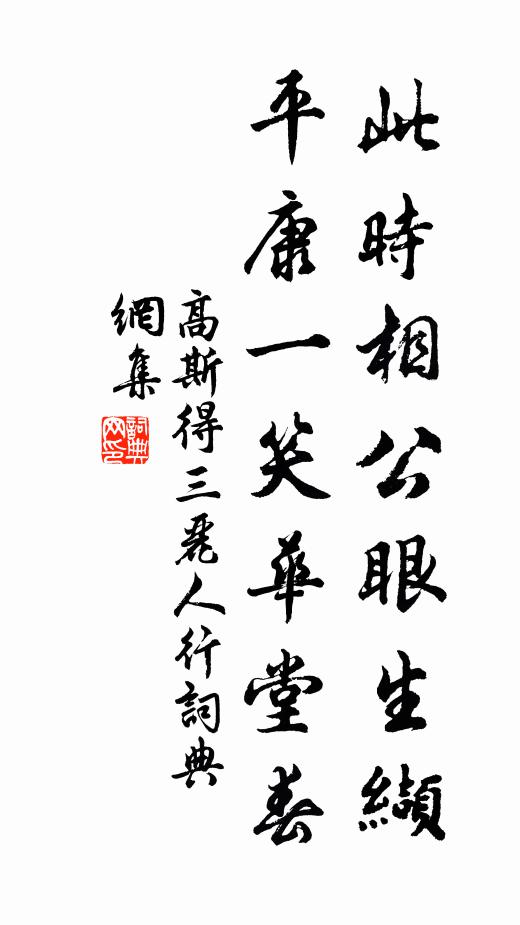 此時相公眼生纈
平康一笑華堂春
高斯得三麗人行詞典
網集
詞典
网印